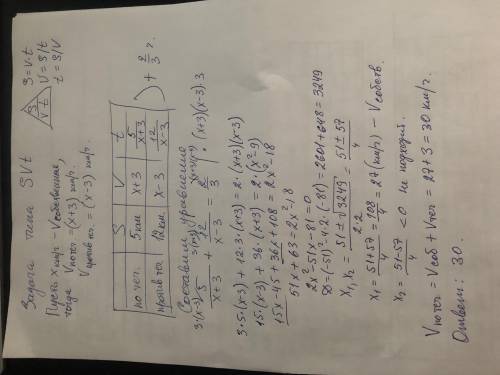 Задача типа SVt
S
V t
S = V · t
V = S/t
t = S/V
Пусть x км/ч - Vсобственная,
тогда Vпо теч. = (x+3) км/ч.
Vпротив теч. = (x-3) км/ч.
S V t
по теч. 5 км x+3 5/(x+3)
против теч 12 км x-3 12/(x-3)
) + 2/3 ч.
Составим уравнение
5/(x+3) + 12/(x-3) = 2/3 | · (x+3)(x-3) 3
3·5·(x-3) + 12·3·(x+3) = 2·(x+3)(x-3)
15·(x-3) + 36·(x+3) = 2·(x²-9)
15x-45 + 36x+108 = 2x²-18
51x + 63 = 2x²-18
2x²-51x-81=0
D = (-51)²-4·2·(-81) = 2601+648 = 3249
x₁,x₂ = (51±√3249)/(2·2) = (51±57)/4
x₁ = (51+57)/4 = 108/4 = 27 (км/ч) - Vсобств.
x₂ = (51-57)/4 < 0 не подходит.
Vпо теч = Vсоб + Vтеч = 27+3 = 30 км/ч.
Ответ: 30.